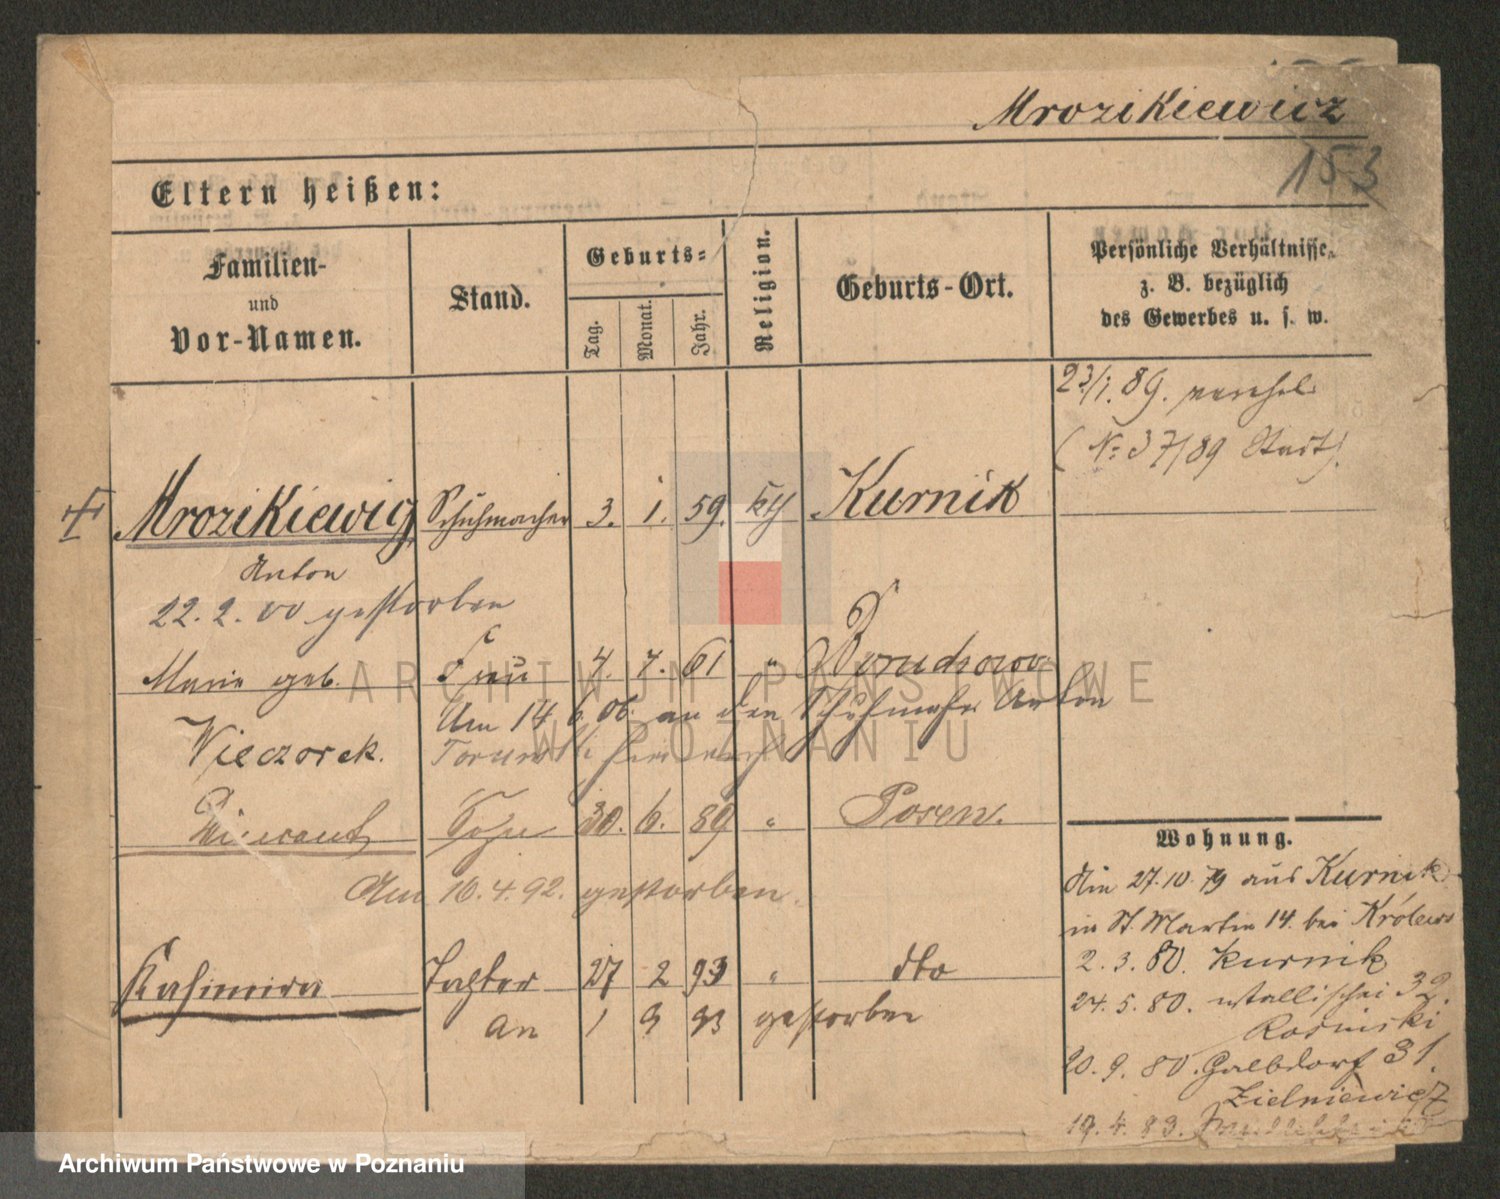 Mrozikiewicz
153
Eltern heißen:
Familien-
und
Vor-Namen.
Stand.
Geburts-
Tag.
Monat.
Jahr.
Religion.
Geburts-Ort.
Persönliche Verhältnisse,
z. B. bezüglich
des Gewerbes u. s. w.
23/1. 89. verehel.
(No 37/89 Stadt).
Mrozikiewicz Schuhmacher 3. 1. 59. kth Kurnik
Anton
22. 2. 00 gestorben
Marie geb. Frau 4. 7. 61 "
Am 14 6. 06. an den Schuhmacher Anton
Wieczorek.
Sohn 30. 6. 89 " Posen.
Am 16. 4. 92. gestorben.
Kasimira Tochter 27 2 93 " dto
an 1 9 93 gestorben
Wohnung.
Am 27. 10. 79 aus Kurnik
in St. Martin 14. bei
2. 3. 80. Kurnik
24. 5. 80. Wallischei 39.
Rosinski
20. 9. 80. Halbdorf 31.
Zielniewicz
19. 4. 83.
ARCHIWUM PAŃSTWOWE
W POZNANIU
Archiwum Państwowe w Poznaniu